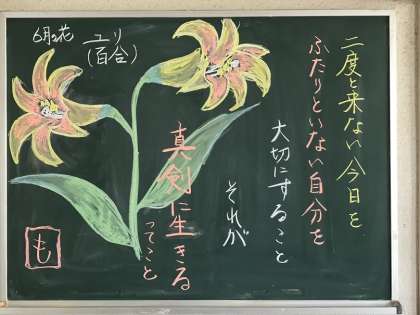 6月の花
ユリ
(百合)
二度と来ない今日を
ふたりといない自分を
大切にすること
それが
真剣に生きる
ってこと
も